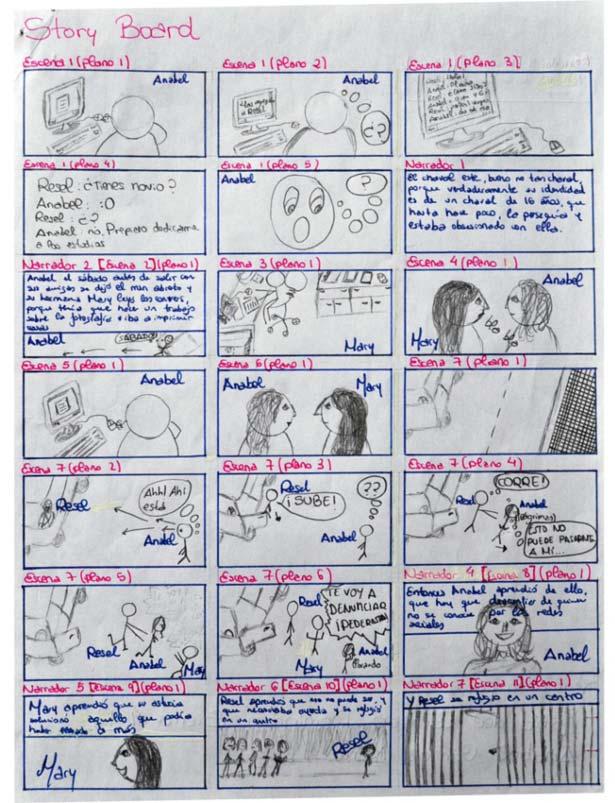 Story Board
Escena 1 (plano 1)
Anabel
Escena 1 (plano 2)
Anabel
¿?
Escena 1 (plano 3)
Escena 1 (plano 4)
Resel: ¿Tienes novio?
Anabel: :O
Resel: ¿?
Anabel: no, Prefiero dedicarme
a los estudios
Escena 1 (plano 5)
Anabel
?
Narrador 1
El chaval este, bueno no tan chaval,
porque verdaderamente su identidad
es de un chaval de 16 años, que
hasta hace poco, la perseguia y
estaba obsesionado con ella.
Narrador 2 [Escena 2] (plano 1)
Anabel el sábado antes de salir con
sus amigas se dejó el msn abierto y
su hermana Mary leyó los correos,
porque tenia que hacer un trabajo
sobre la fotografía e iba a imprimir
Anabel
SÁBADO
Escena 3 (plano 1)
Mary
Escena 4 (plano 1)
Anabel
Mary
bla bla
Escena 5 (plano 1)
Anabel
Escena 6 (plano 1)
Anabel
Mary
Escena 7 (plano 1)
Escena 7 (plano 2)
Resel
Ahh! Ahi
está
Anabel
Escena 7 (plano 3)
Resel
¡SUBE!
??
Anabel
Escena 7 (plano 4)
¡CORRE!
Resel
Anabel
(lágrimas)
ESTO NO
PUEDE PASARME
A MÍ...
Escena 7 (plano 5)
Resel
Anabel
Mary
Escena 7 (plano 6)
Resel
TE VOY A
DENUNCIAR
¡PEDERASTA!
Mary
Anabel
llorando
Narrador 4 [Escena 8] (plano 1)
Entonces Anabel aprendió de ello,
que hay que desconfiar de quien
no se conoce por las redes
sociales
Anabel
Narrador 5 [Escena 9] (plano 1)
Mary aprendió que su astucia
solucionó aquello que podía
haber a más
Mary
Narrador 6 [Escena 10] (plano 1)
Resel aprendió que eso no puede ser, y
que necesitaba ayuda y se refugió
en un
Resel
Narrador 7 [Escena 11] (plano 1)
Y Resel se refugio en un centro